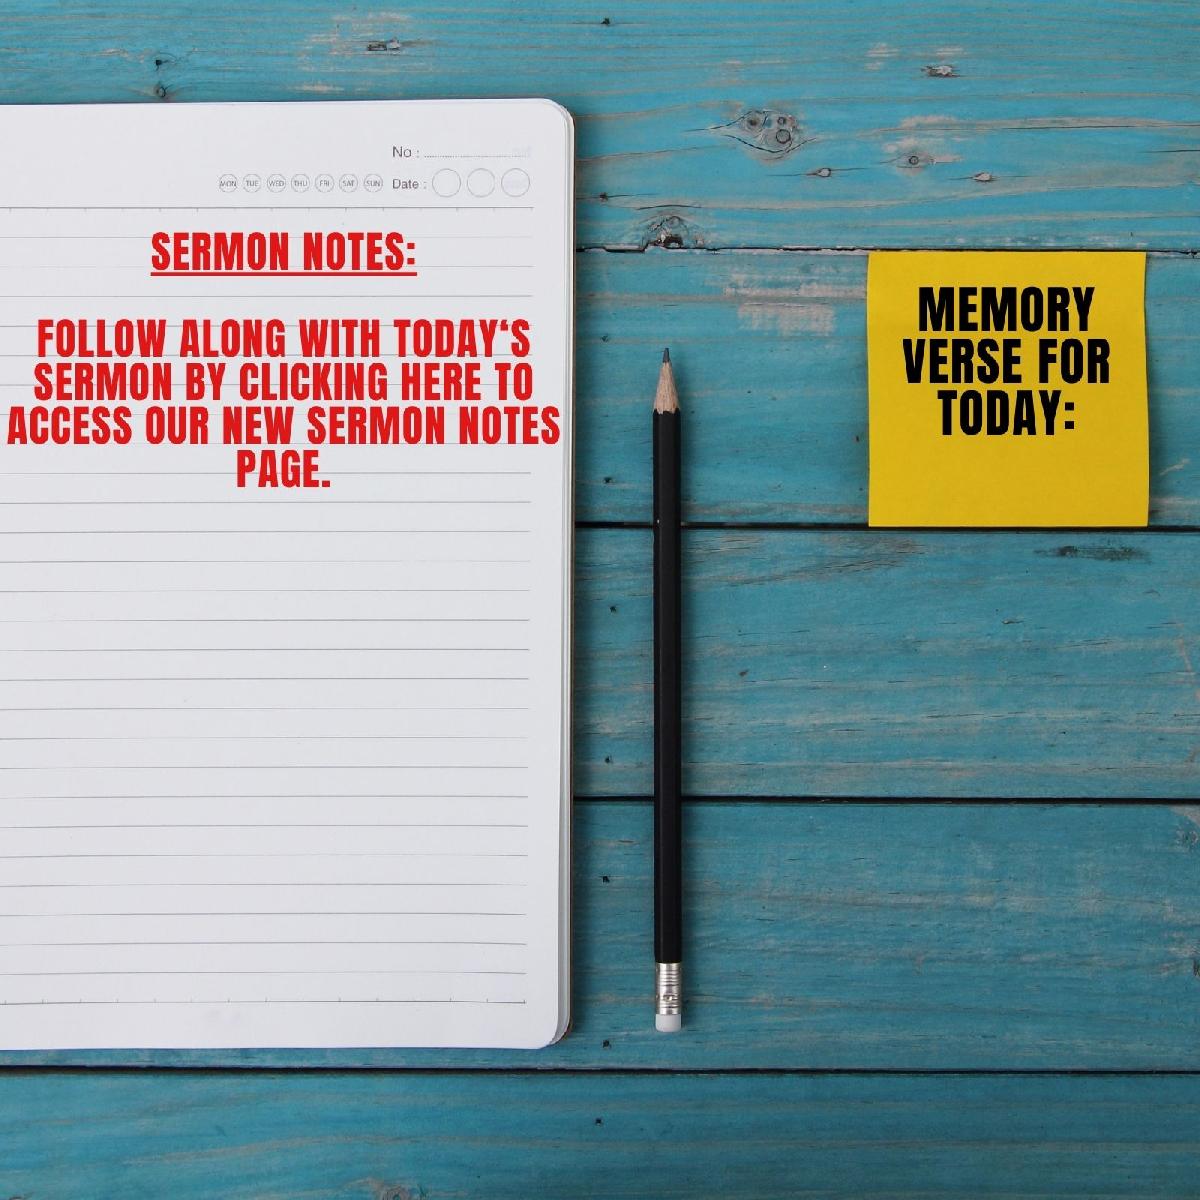 No :
MON TUE WED THU FRI SAT SUN Date :
SERMON NOTES:
FOLLOW ALONG WITH TODAY‘S
SERMON BY CLICKING HERE TO
ACCESS OUR NEW SERMON NOTES
PAGE.
MEMORY
VERSE FOR
TODAY: